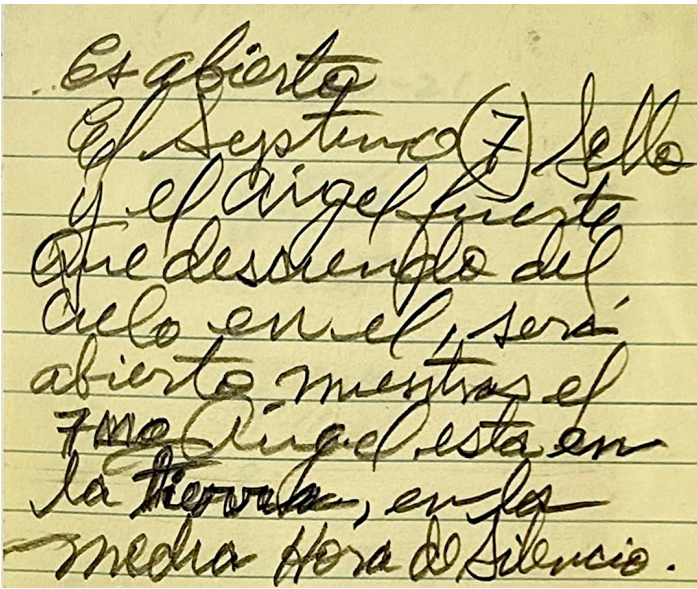 Es abierto
El Septimo (7) Sello
y el Angel fuerte
que desciendo del
cielo en el, será
abierto mientras el
7mo Angel esta en
la tierra, en la
media Hora de Silencio.